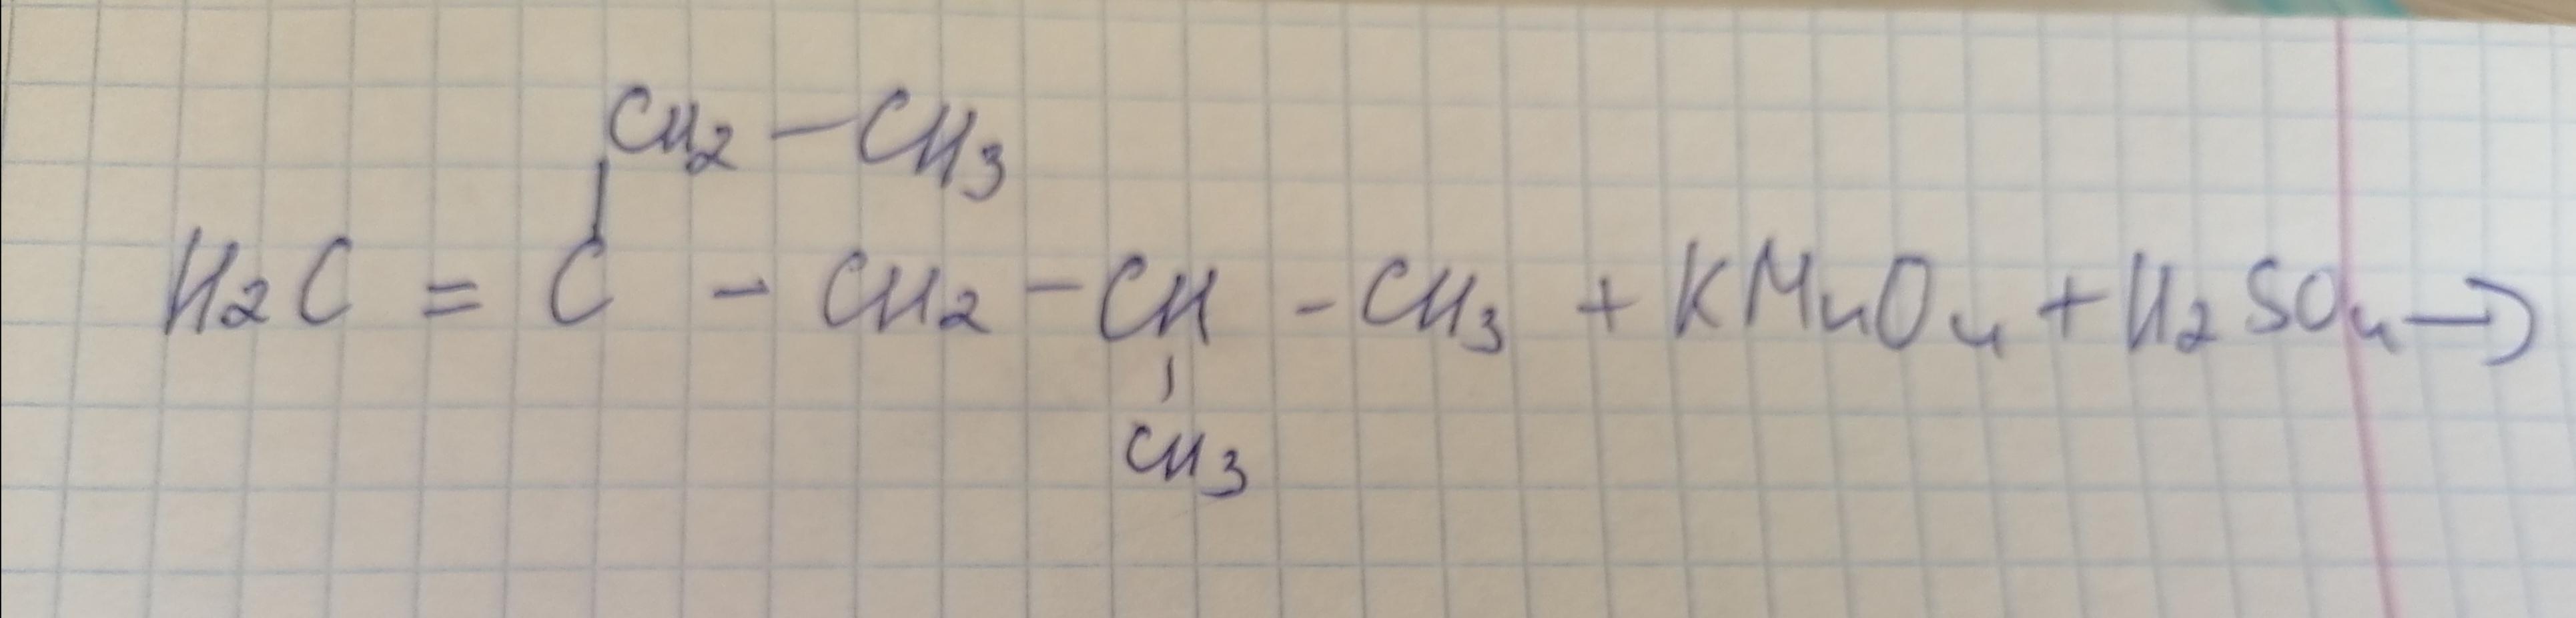 CH2 – CH3
H2C = C – CH2 – CH – CH3 + KMnO4 + H2SO4 →
CH3